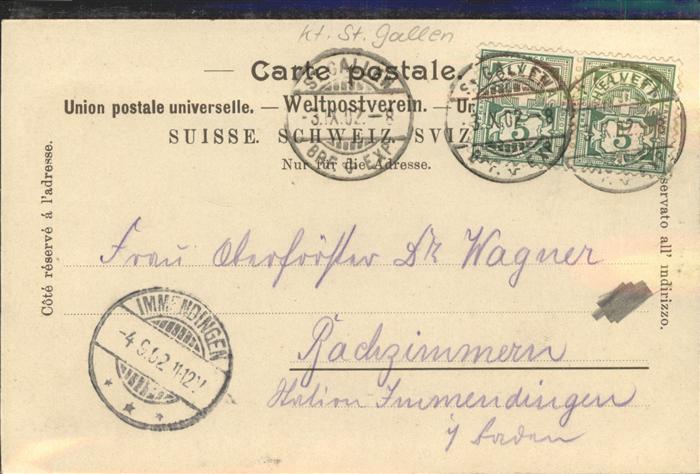 Kt. St. Gallen
Carte postale.
Union postale universelle. — Weltpostverein. — Un
SUISSE. SCHWEIZ. SVIZ
Nur für die Adresse.
Côté réservé à l'adresse.
servato all' indirizzo.
ST. GALLEN
- 3. IX. 02. - 8
BRF. EXP.
HELVETIA
5
HELVETIA
5
IX. 02. - 8
Frau Oberförster Dr Wagner
Bachzimmern
Station Immendingen
i/ Baden
IMMENDINGEN
- 4 9. 02 11-12V